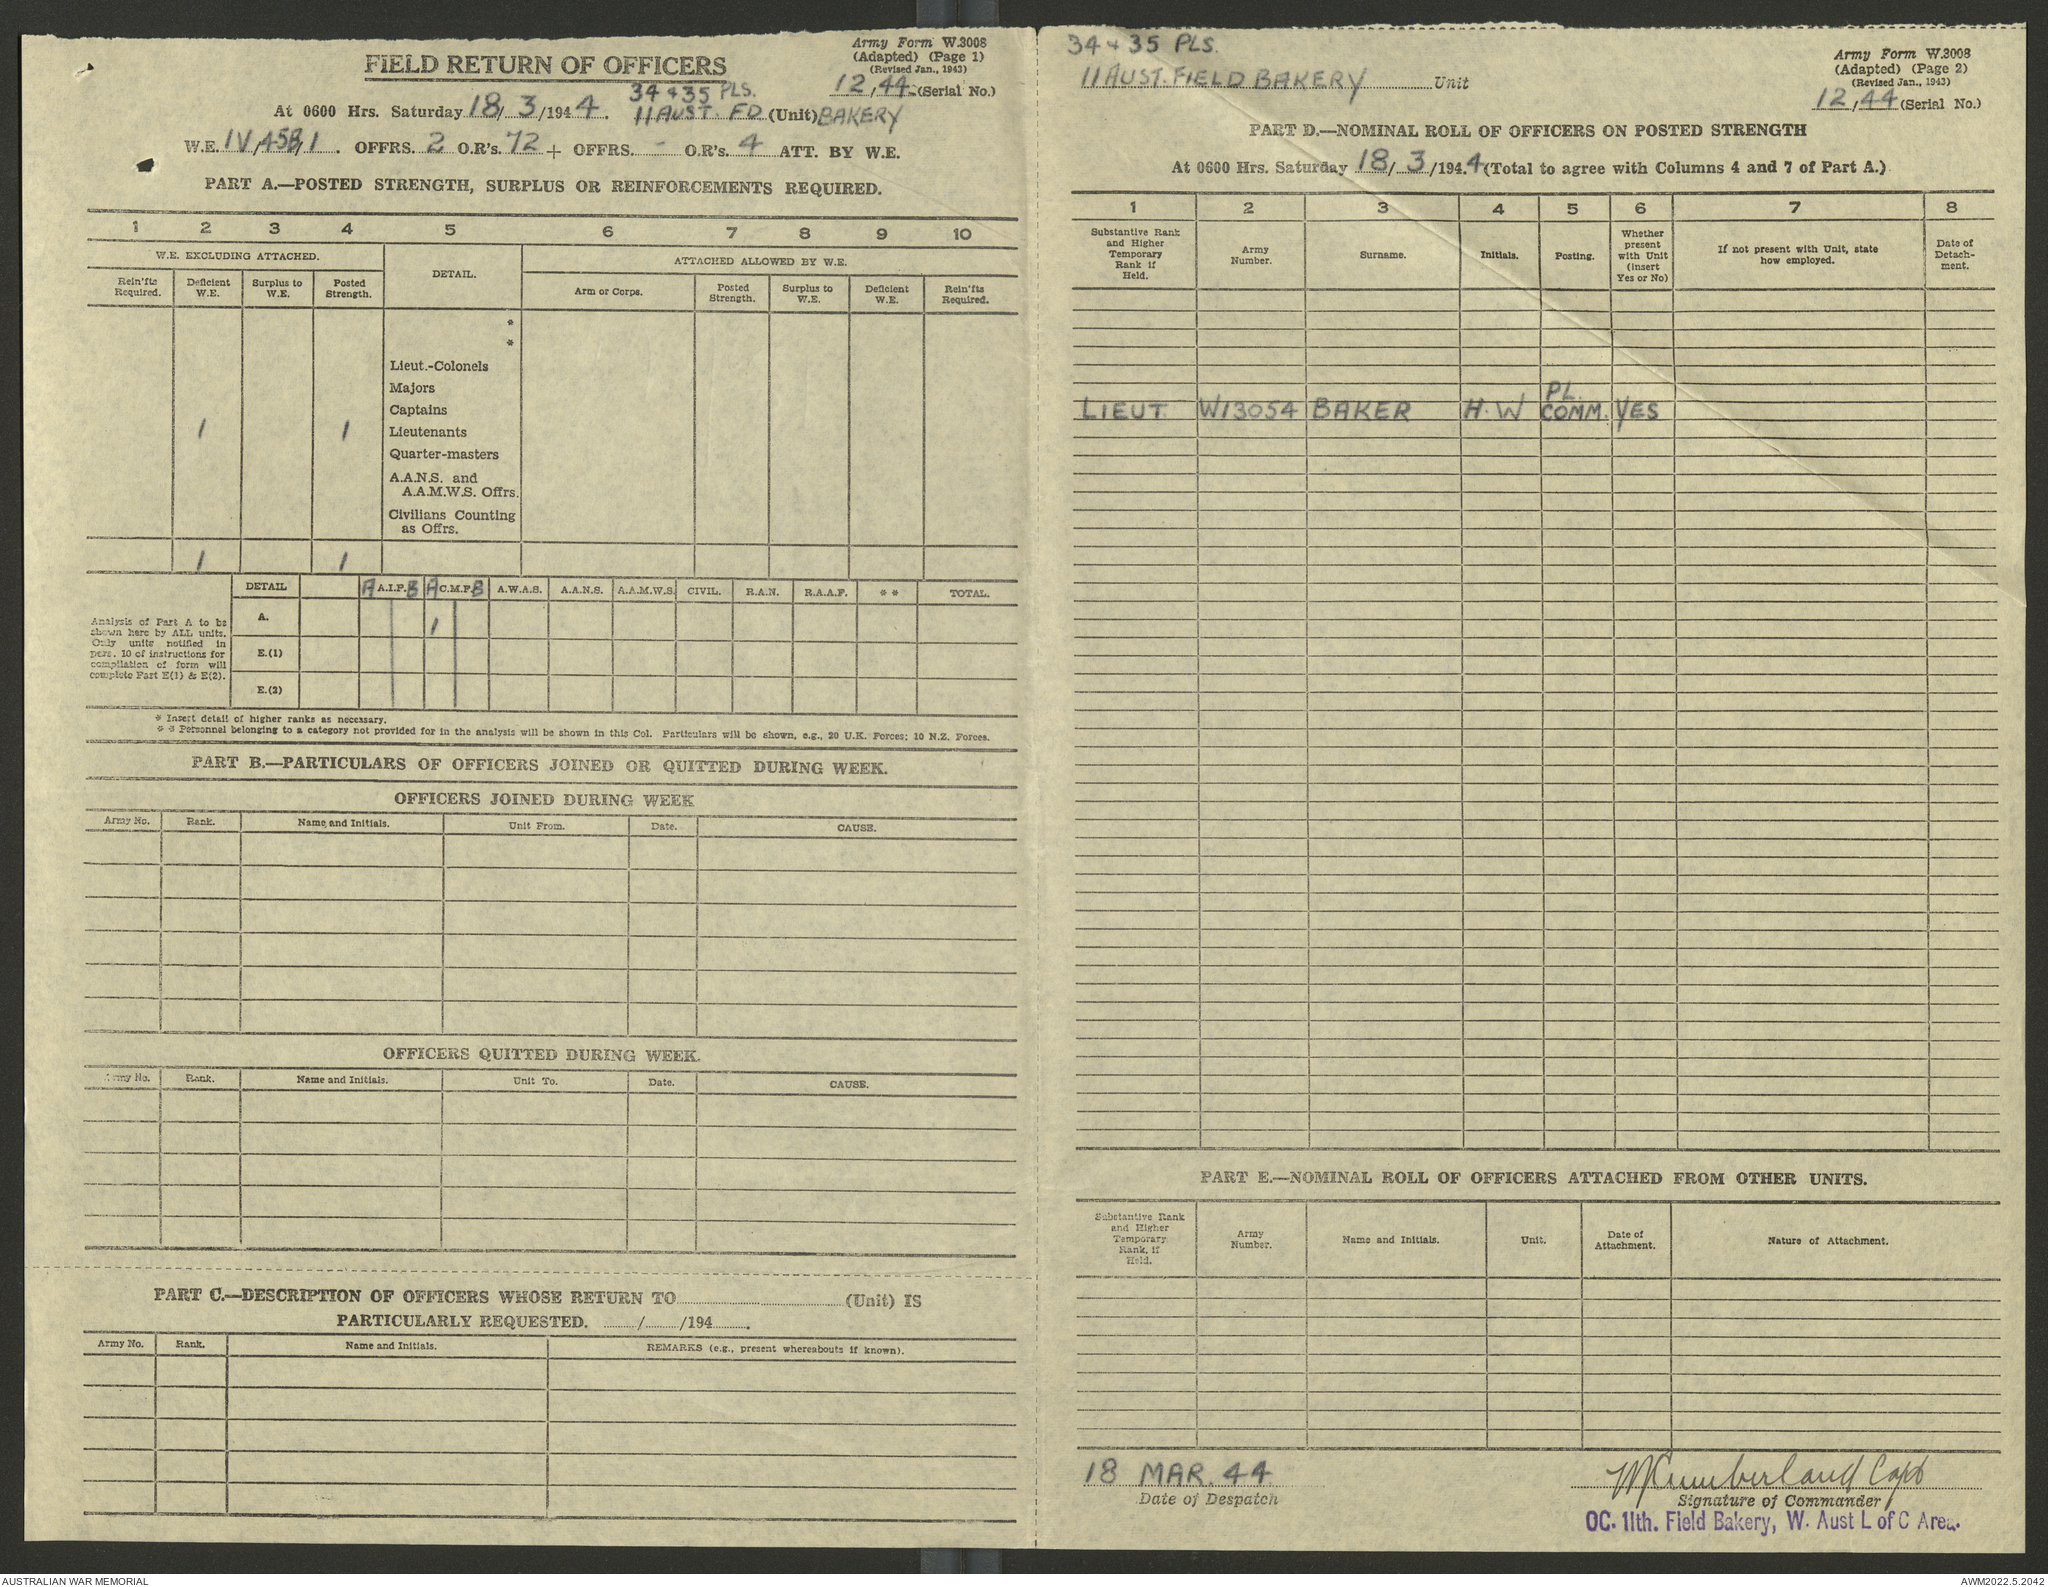 Army Form W.3008
(Adapted) (Page 1)
(Revised Jan., 1943)
FIELD RETURN OF OFFICERS
12,44 (Serial No.)
34 & 35 PLS.
At 0600 Hrs. Saturday 18/3/1944. 11 AUST. FD (Unit) BAKERY
W.E. IV,45B,1. OFFRS. 2 O.R's. 72 + OFFRS. - O.R's. 4 ATT. BY W.E.
PART A.—POSTED STRENGTH, SURPLUS OR REINFORCEMENTS REQUIRED.
1 2 3 4 5 6 7 8 9 10
W.E. EXCLUDING ATTACHED. DETAIL. ATTACHED ALLOWED BY W.E.
Rein'fts Required. Deficient W.E. Surplus to W.E. Posted Strength. Arm or Corps. Posted Strength. Surplus to W.E. Deficient W.E. Rein'fts Required.
*
*
Lieut.-Colonels
Majors
Captains
1 1 Lieutenants
Quarter-masters
A.A.N.S. and
A.A.M.W.S. Offrs.
Civilians Counting
as Offrs.
1 1
DETAIL A A.I.F. B A C.M.F. B A.W.A.S. A.A.N.S. A.A.M.W.S. CIVIL. R.A.N. R.A.A.F. * * TOTAL.
Analysis of Part A to be
shown here by ALL units.
Only units notified in
para. 10 of instructions for
compilation of form will
complete Part E(1) & E(2).
A. 1
E.(1)
E.(2)
* Insert detail of higher ranks as necessary.
* * Personnel belonging to a category not provided for in the analysis will be shown in this Col. Particulars will be shown, e.g., 20 U.K. Forces; 10 N.Z. Forces.
PART B.—PARTICULARS OF OFFICERS JOINED OR QUITTED DURING WEEK.
OFFICERS JOINED DURING WEEK
Army No. Rank. Name and Initials. Unit From. Date. CAUSE.
OFFICERS QUITTED DURING WEEK.
Army No. Rank. Name and Initials. Unit To. Date. CAUSE.
PART C.—DESCRIPTION OF OFFICERS WHOSE RETURN TO (Unit) IS
PARTICULARLY REQUESTED. / /194 .
Army No. Rank. Name and Initials. REMARKS (e.g., present whereabouts if known).
34 & 35 PLS.
11 AUST. FIELD BAKERY Unit
Army Form W.3008
(Adapted) (Page 2)
(Revised Jan., 1943)
12,44 (Serial No.)
PART D.—NOMINAL ROLL OF OFFICERS ON POSTED STRENGTH
At 0600 Hrs. Saturday 18/3/194.4 (Total to agree with Columns 4 and 7 of Part A.)
1 2 3 4 5 6 7 8
Substantive Rank and Higher Temporary Rank if Held. Army Number. Surname. Initials. Posting. Whether present with Unit (insert Yes or No) If not present with Unit, state how employed. Date of Detachment.
LIEUT. W13054 BAKER H. W PL. COMM. YES
PART E.—NOMINAL ROLL OF OFFICERS ATTACHED FROM OTHER UNITS.
Substantive Rank and Higher Temporary Rank, if Held. Army Number. Name and Initials. Unit. Date of Attachment. Nature of Attachment.
18 MAR. 44
Date of Despatch
Cumberland Capt
Signature of Commander
OC. 11th. Field Bakery, W. Aust L of C Area.
AUSTRALIAN WAR MEMORIAL
AWM2022.5.2042